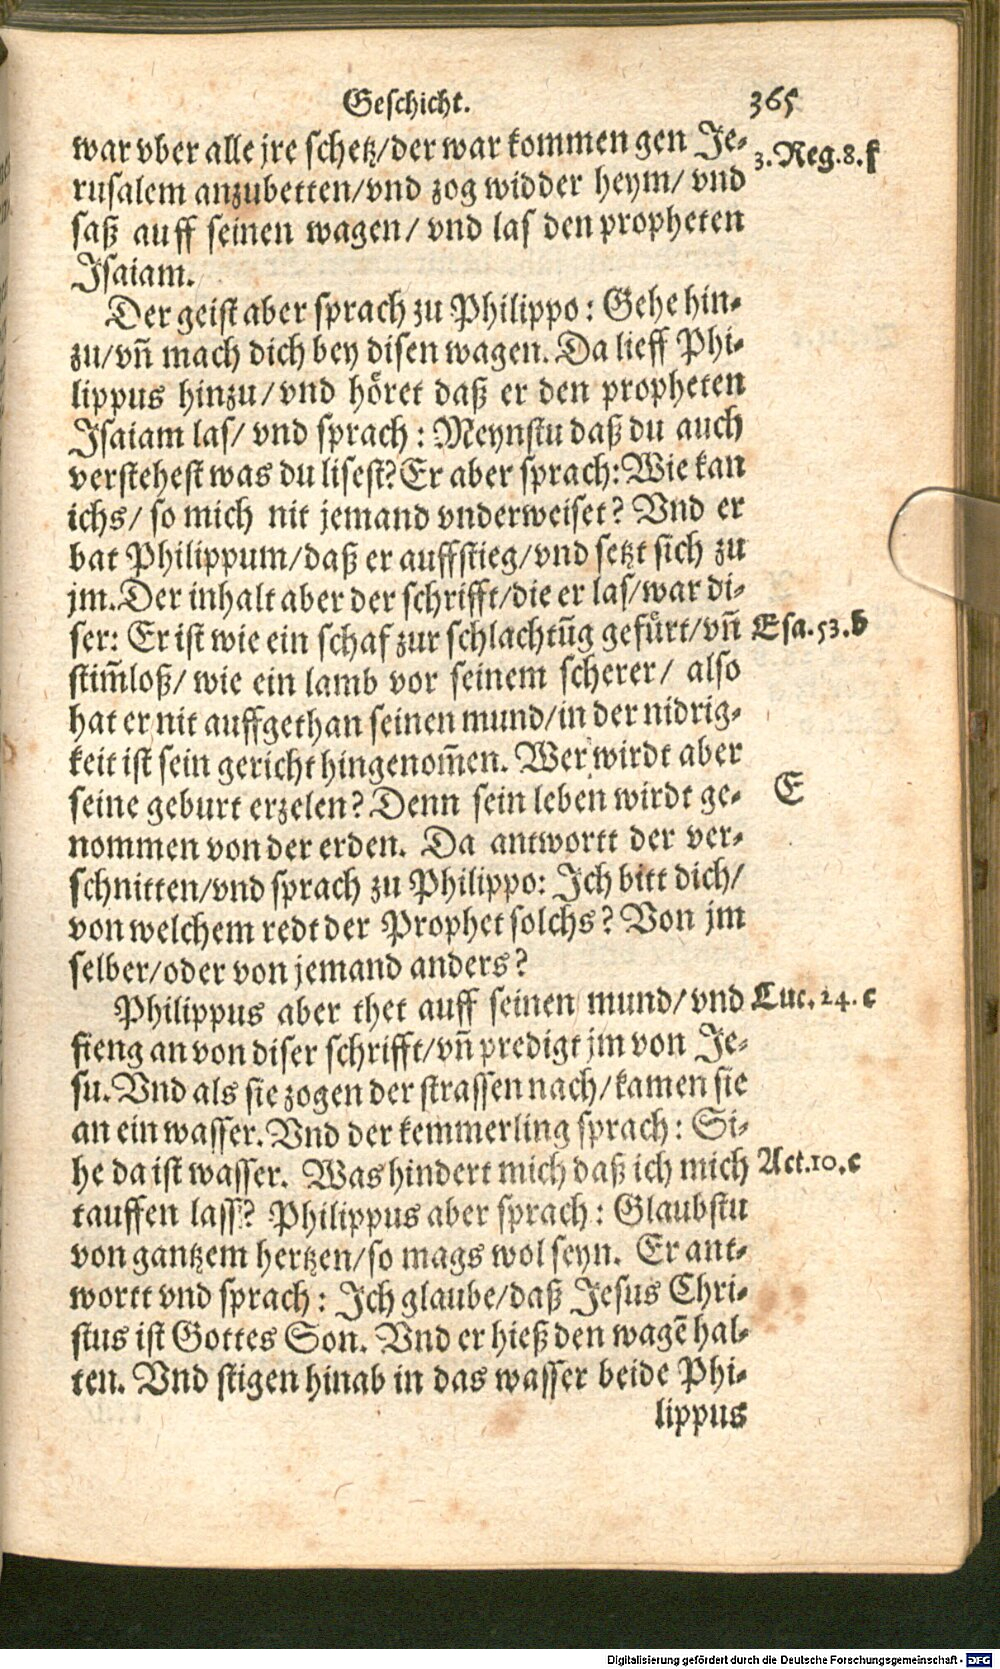 Geschicht. 365
war vber alle jre schetz/der war kommen gen Je- 3.Reg.8.f
rusalem anzubetten/vnd zog widder heym/ vnd
saß auff seinen wagen/ vnd las den propheten
Isaiam.
Der geist aber sprach zu Philippo: Gehe hin-
zu/vñ mach dich bey disen wagen. Da lieff Phi-
lippus hinzu/vnd höret daß er den propheten
Isaiam las/ vnd sprach: Meynstu daß du auch
verstehest was du lisest? Er aber sprach: Wie kan
ichs/ so mich nit jemand vnderweiset? Vnd er
bat Philippum/daß er auffstieg/vnd setzt sich zu
jm. Der inhalt aber der schrifft/die er las/war di-
ser: Er ist wie ein schaf zur schlachtũg gefürt/vñ Esa.53.b
stim̃loß/ wie ein lamb vor seinem scherer/ also
hat er nit auffgethan seinen mund/in der nidrig-
keit ist sein gericht hingenom̃en. Wer wirdt aber
seine geburt erzelen? Denn sein leben wirdt ge- E
nommen von der erden. Da antwortt der ver-
schnitten/vnd sprach zu Philippo: Ich bitt dich/
von welchem redt der Prophet solchs? Von jm
selber/oder von jemand anders?
Philippus aber thet auff seinen mund/vnd Luc.24.c
fieng an von diser schrifft/vñ predigt jm von Je-
su. Vnd als sie zogen der strassen nach/kamen sie
an ein wasser. Vnd der kemmerling sprach: Si-
he da ist wasser. Was hindert mich daß ich mich Act.10.c
tauffen lass? Philippus aber sprach: Glaubstu
von gantzem hertzen/so mags wol seyn. Er ant-
wortt vnd sprach: Ich glaube/daß Jesus Chri-
stus ist Gottes Son. Vnd er hieß den wagẽ hal-
ten. Vnd stigen hinab in das wasser beide Phi-
lippus
Digitalisierung gefördert durch die Deutsche Forschungsgemeinschaft - DFG